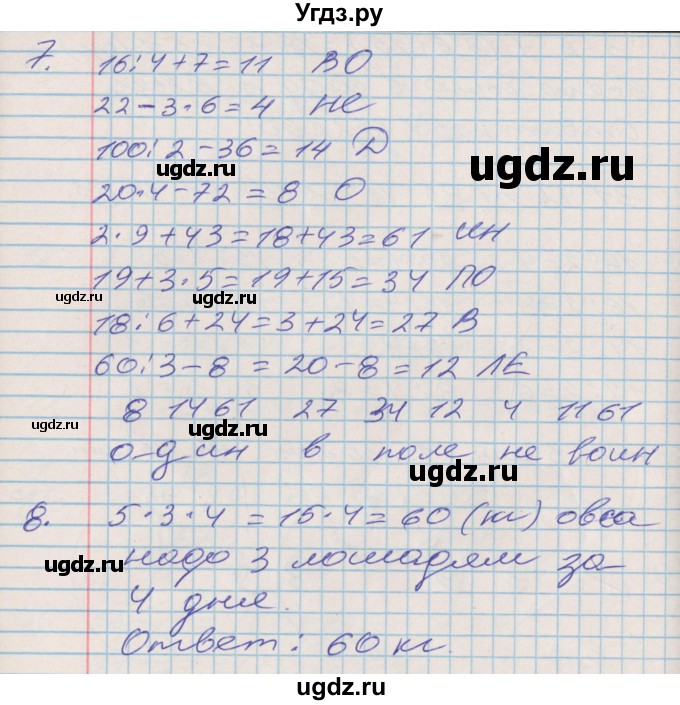 Угдз.ру
7. 16:4+7=11 ВО
22-3·6=4 НЕ
100:2-36=14 Д
20·4-72=8 О
2·9+43=18+43=61 ИН
19+3·5=19+15=34 ПО
18:6+24=3+24=27 В
60:3-8=20-8=12 ЛЕ
8 14 61 27 34 12 4 11 61
о-дин в поле не воин
8. 5·3·4=15·4=60 (кг) овса
надо 3 лошадям за
4 дня.
Ответ: 60 кг.
ugdz.ru
ugdz.ru
ugdz.ru
ugdz.ru
ugdz.ru
ugdz.ru
ugdz.ru
ugdz.ru
ugdz.ru